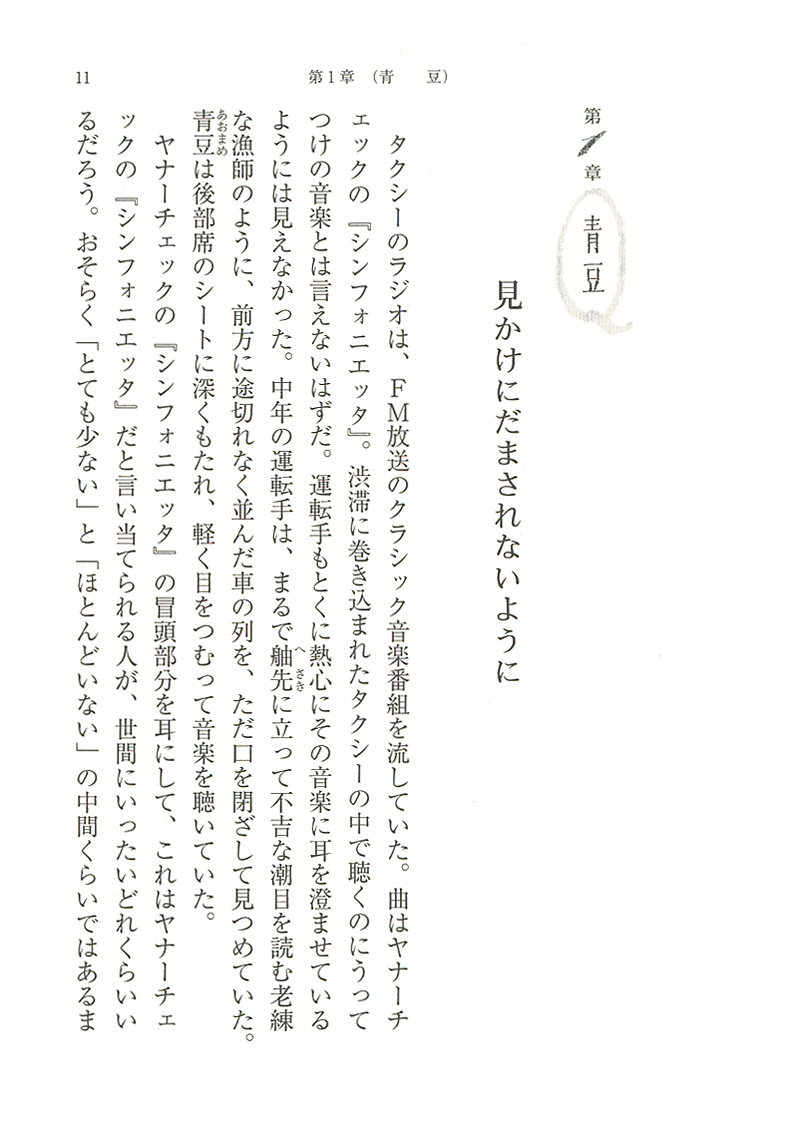 11
第1章 (青　豆)
第1章
青豆
Q
見かけにだまされないように
タクシーのラジオは、ＦＭ放送のクラシック音楽番組を流していた。曲はヤナーチ
ェックの『シンフォニエッタ』。渋滞に巻き込まれたタクシーの中で聴くのにうって
つけの音楽とは言えないはずだ。運転手もとくに熱心にその音楽に耳を澄ませている
ようには見えなかった。中年の運転手は、まるで舳先に立って不吉な潮目を読む老練
へさき
な漁師のように、前方に途切れなく並んだ車の列を、ただ口を閉ざして見つめていた。
青豆は後部席のシートに深くもたれ、軽く目をつむって音楽を聴いていた。
あおまめ
ヤナーチェックの『シンフォニエッタ』の冒頭部分を耳にして、これはヤナーチェ
ックの『シンフォニエッタ』だと言い当てられる人が、世間にいったいどれくらいい
るだろう。おそらく「とても少ない」と「ほとんどいない」の中間くらいではあるま